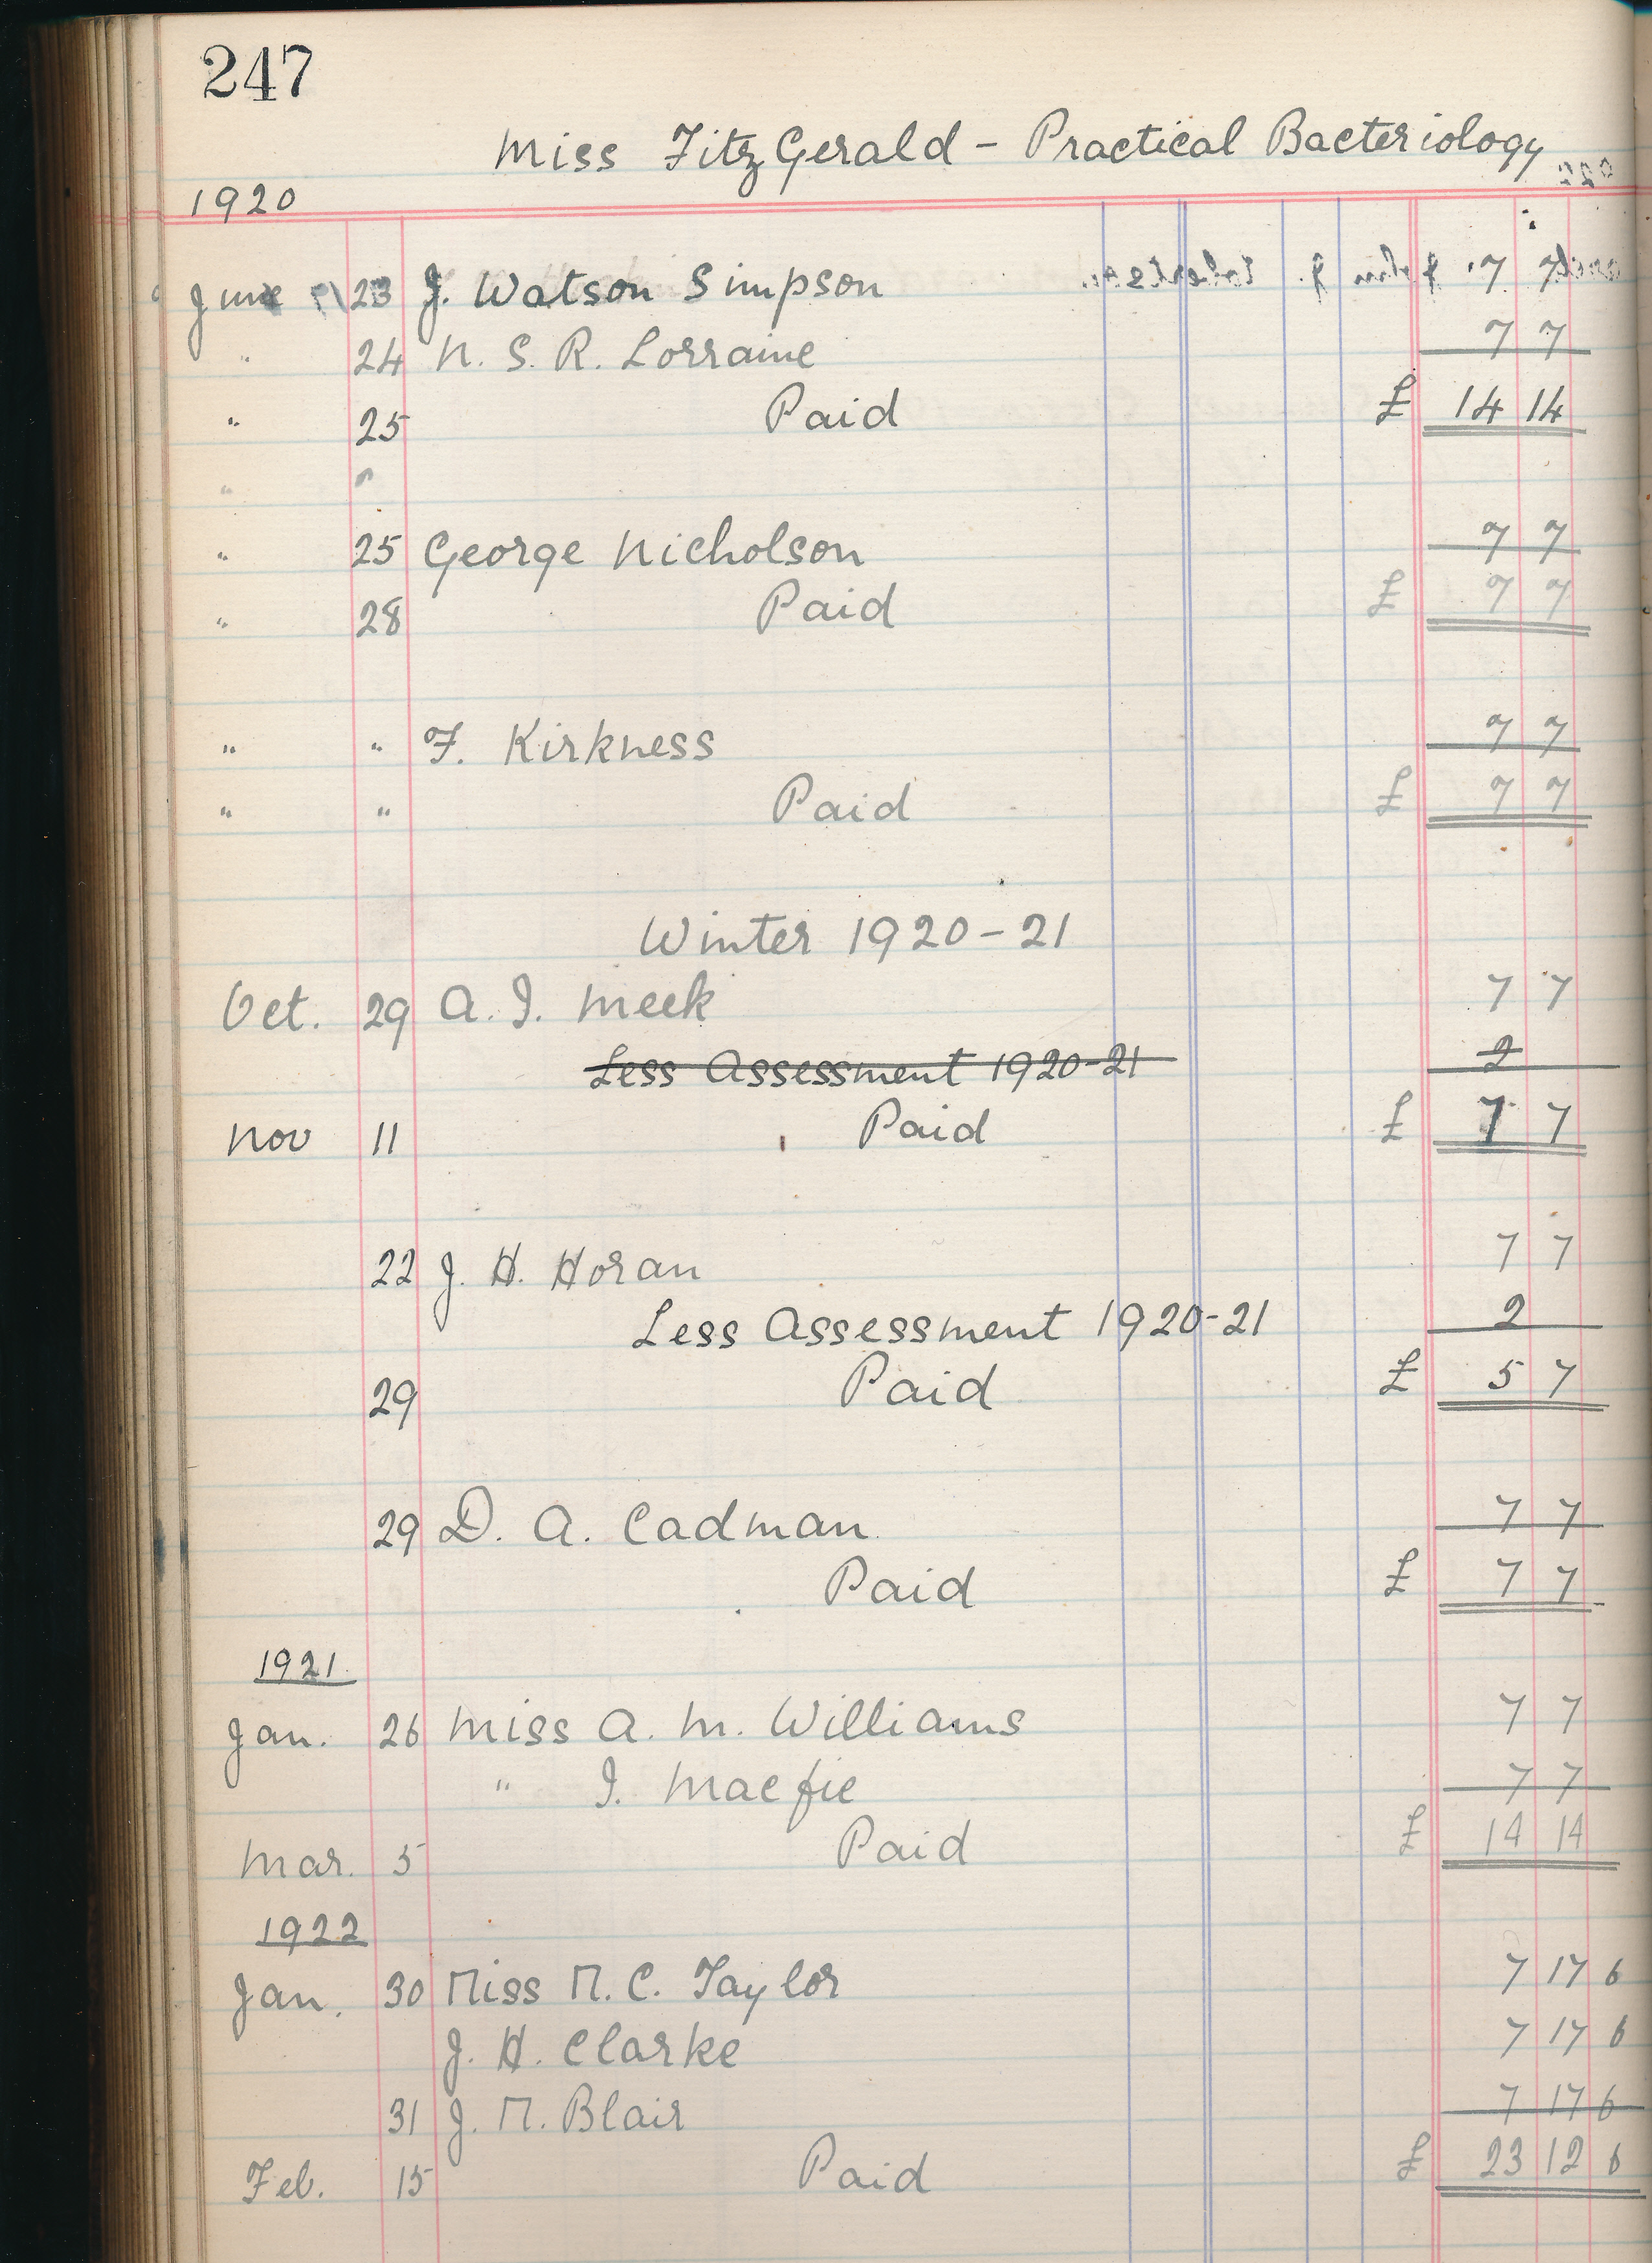 247
Miss FitzGerald - Practical Bacteriology
1920
June 23 J. Watson Simpson 7 7
" 24 N. S. R. Lorraine 7 7
" 25 Paid £ 14 14
" "
" 25 George Nicholson 7 7
" 28 Paid £ 7 7
" " F. Kirkness 7 7
" " Paid £ 7 7
Winter 1920-21
Oct. 29 A. I. Meek 7 7
Less Assessment 1920-21 2
Nov 11 Paid £ 7 7
22 J. H. Horan 7 7
Less Assessment 1920-21 2
29 Paid £ 5 7
29 D. A. Cadman 7 7
Paid £ 7 7
1921
Jan. 26 Miss A. M. Williams 7 7
" I. Macfie 7 7
Mar. 5 Paid £ 14 14
1922
Jan. 30 Miss M. C. Taylor 7 17 6
J. H. Clarke 7 17 6
31 J. M. Blair 7 17 6
Feb. 15 Paid £ 23 12 6